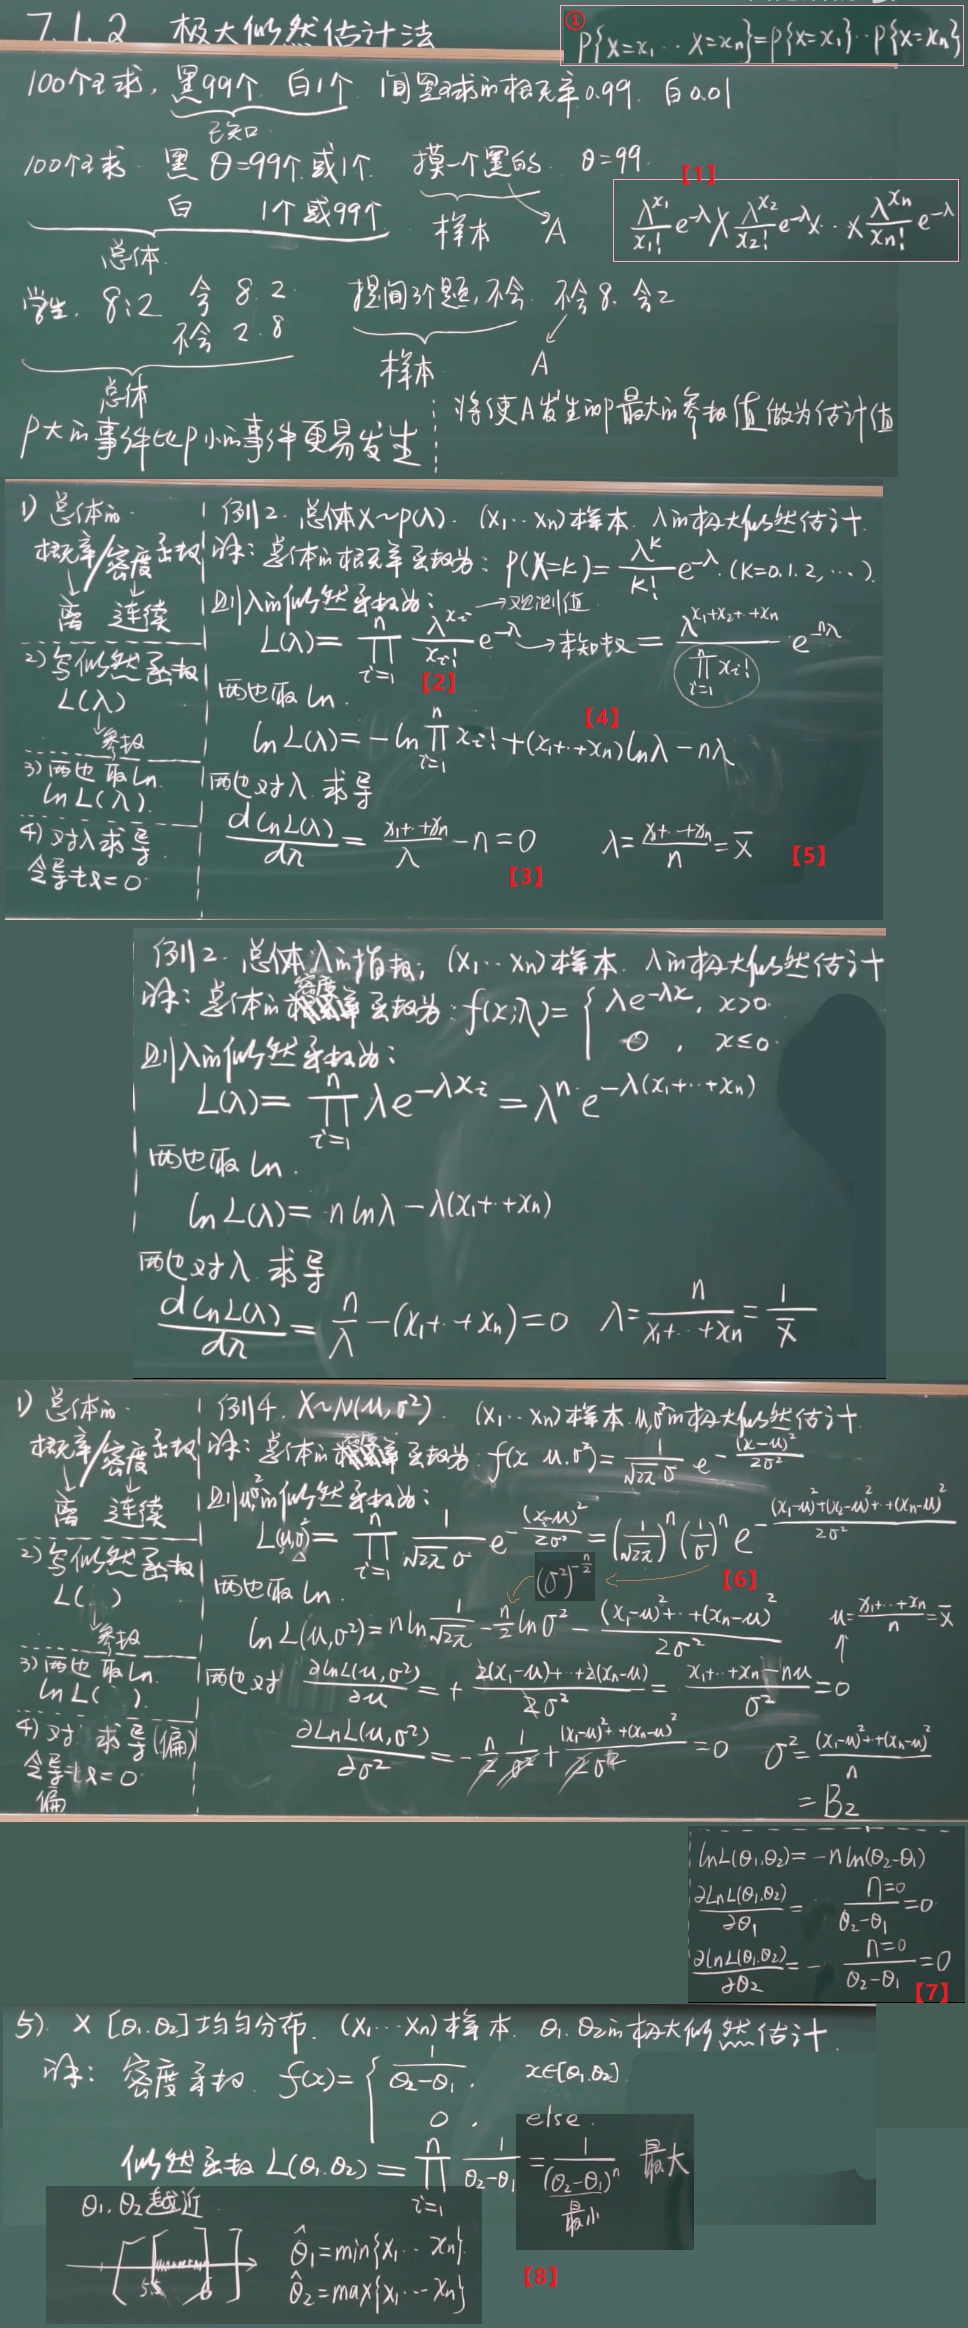 7.1.2 极大似然估计法
① P{X=x₁…X=xₙ}=P{X=x₁}…P{X=xₙ}
100个球，黑99个 白1个 问黑球的概率0.99. 白0.01
已知
100个球. 黑 θ=99个或1个. 摸一个黑的. θ=99.
白 1个或99个
样本 A
总体
【1】
λ^x₁/x₁! e^-λ × λ^x₂/x₂! e^-λ × … × λ^xₙ/xₙ! e^-λ
学生. 8:2 会 8.2 提问3个题,不会. 不会8. 会2
不会 2.8
样本 A
总体
P大的事件比P小的事件更易发生
将使A发生的P最大的参数值做为估计值
1) 总体的
概率/密度函数
离 连续
2) 写似然函数
L(λ)
参数
3) 两边取ln.
ln L(λ).
4) 对λ求导
令导数=0.
例2. 总体X~P(λ). (x₁…xₙ)样本. λ的极大似然估计.
解: 总体的概率函数为: P(X=k)= λ^k/k! e^-λ. (k=0.1.2,…).
则λ的似然函数为: →观测值.
L(λ)= ∏ᵢ₌₁ⁿ λ^xᵢ/xᵢ! e^-λ →未知数 = λ^(x₁+x₂+…+xₙ)/∏ᵢ₌₁ⁿ xᵢ! · e^-nλ
【2】
两边取ln.
【4】
ln L(λ)= -ln ∏ᵢ₌₁ⁿ xᵢ! + (x₁+…+xₙ)lnλ - nλ
两边对λ求导
d lnL(λ)/dλ = (x₁+…+xₙ)/λ - n = 0 λ= (x₁+…+xₙ)/n = x̄ 【5】
【3】
例2. 总体λ的指数, (x₁…xₙ)样本. λ的极大似然估计
解: 总体的密度函数为: f(x;λ)= { λe^-λx, x>0.
0, x≤0.
则λ的似然函数为:
L(λ)= ∏ᵢ₌₁ⁿ λe^-λxᵢ = λⁿ e^-λ(x₁+…+xₙ)
两边取ln.
ln L(λ)= n lnλ - λ(x₁+…+xₙ)
两边对λ求导
d lnL(λ)/dλ = n/λ - (x₁+…+xₙ)=0 λ= n/(x₁+…+xₙ) = 1/x̄
1) 总体的
概率/密度函数
离 连续
2) 写似然函数
L( )
参数
3) 两边取ln.
ln L( ).
4) 对 求导(偏)
令导数=0.
偏
例4. X~N(μ,σ²). (x₁…xₙ)样本.μ,σ²的极大似然估计.
解: 总体的密度函数为: f(x μ.σ²)= 1/(√2π σ) e^-(x-μ)²/2σ²
则μ,σ²的似然函数为:
L(μ,σ²)= ∏ᵢ₌₁ⁿ 1/(√2π σ) e^-(xᵢ-μ)²/2σ² = (1/√2π)ⁿ (1/σ)ⁿ e^-((x₁-μ)²+(x₂-μ)²+…+(xₙ-μ)²)/2σ²
(σ²)^-n/2 【6】
两边取ln.
ln L(μ,σ²)= n ln 1/√2π - n/2 lnσ² - ((x₁-μ)²+…+(xₙ-μ)²)/2σ² μ= (x₁+…+xₙ)/n = x̄
两边对 ∂lnL(μ,σ²)/∂μ = + (2(x₁-μ)+…+2(xₙ-μ))/2σ² = (x₁+…+xₙ-nμ)/σ² = 0
∂LnL(μ,σ²)/∂σ² = - n/2 1/σ² + ((x₁-μ)²+…+(xₙ-μ)²)/2σ⁴ = 0 σ²= ((x₁-μ)²+…+(xₙ-μ)²)/n
= B₂
lnL(θ₁.θ₂)= -n ln(θ₂-θ₁)
∂LnL(θ₁.θ₂)/∂θ₁ = n=0/(θ₂-θ₁) =0
∂lnL(θ₁.θ₂)/∂θ₂ = - n=0/(θ₂-θ₁) =0
【7】
5). X [θ₁.θ₂]均匀分布. (x₁…xₙ)样本. θ₁.θ₂的极大似然估计.
解: 密度函数. f(x)= { 1/(θ₂-θ₁), x∈[θ₁.θ₂].
0, else.
似然函数 L(θ₁.θ₂)= ∏ᵢ₌₁ⁿ 1/(θ₂-θ₁) = 1/(θ₂-θ₁)ⁿ 最大
最小
θ₁.θ₂越近
θ̂₁=min{x₁…xₙ}.
θ̂₂=max{x₁…xₙ}
【8】